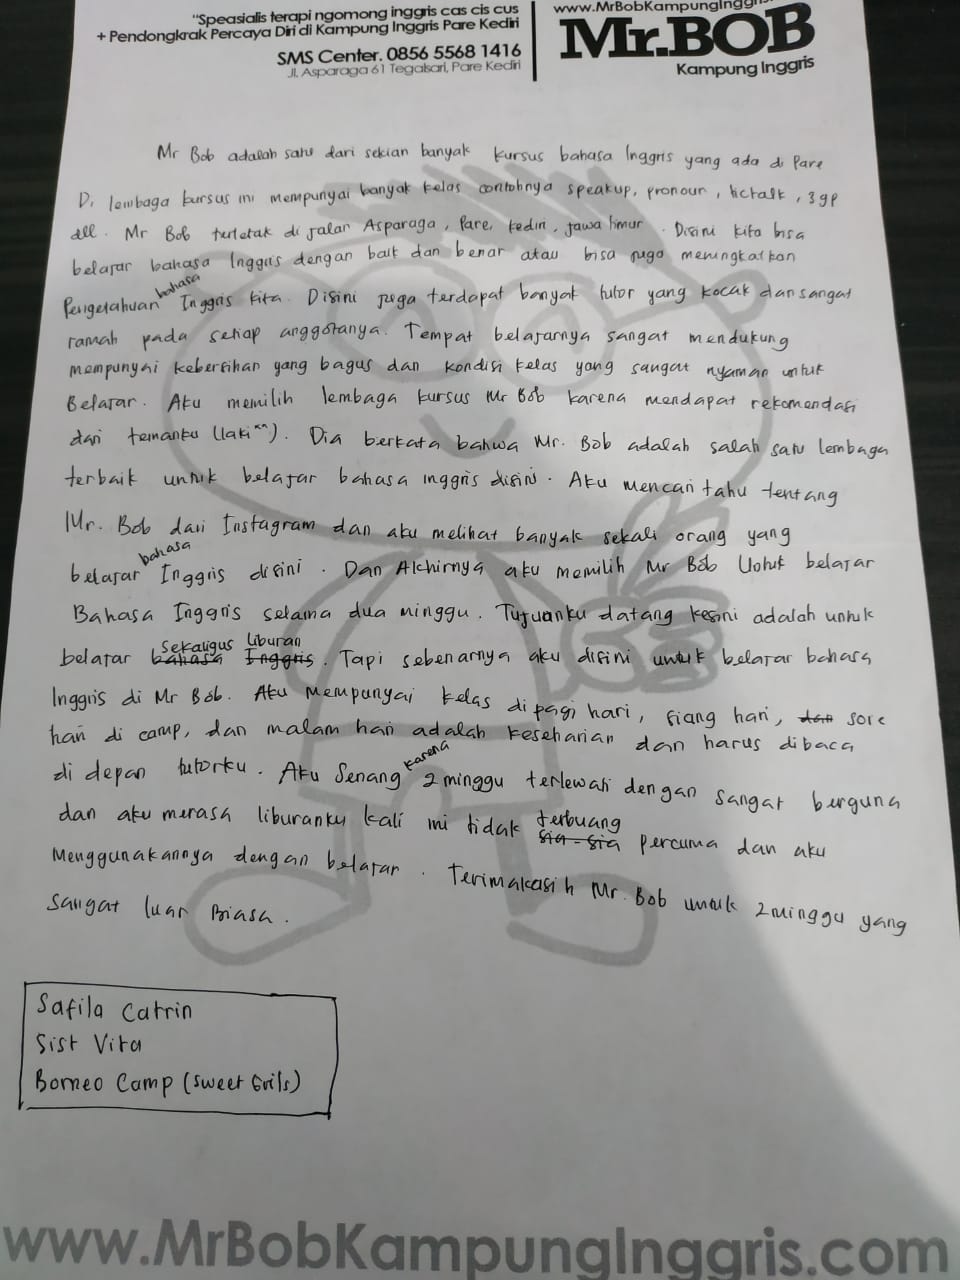 "Speasialis terapi ngomong inggris cas cis cus
+ Pendongkrak Percaya Diri di Kampung Inggris Pare Kediri
SMS Center. 0856 5568 1416
Jl. Asparaga 61 Tegalsari, Pare Kediri
www.MrBobKampungInggris
Mr.BOB
Kampung Inggris
Mr Bob adalah satu dari sekian banyak kursus bahasa Inggris yang ada di Pare
Di lembaga kursus ini mempunyai banyak kelas contohnya speakup, pronoun, 3gp
dll. Mr Bob terletak di jalan Asparaga, Pare, kediri, jawa timur. Disini kita bisa
belajar bahasa Inggris dengan baik dan benar atau bisa juga meningkatkan
Pengetahuan bahasa Inggris kita. Disini juga terdapat banyak tutor yang kocak dan sangat
ramah pada setiap anggotanya. Tempat belajarnya sangat mendukung
mempunyai kebersihan yang bagus dan kondisi kelas yang sangat nyaman untuk
Belajar. Aku memilih lembaga kursus Mr Bob karena mendapat rekomendasi
dari temanku (laki²). Dia berkata bahwa Mr. Bob adalah salah satu lembaga
terbaik untuk belajar bahasa inggris disini. Aku mencari tahu tentang
Mr. Bob dari Instagram dan aku melihat banyak sekali orang yang
belajar bahasa Inggris disini. Dan Akhirnya aku memilih Mr Bob Untuk belajar
Bahasa Inggris selama dua minggu. Tujuanku datang kesini adalah untuk
belajar bahasa Inggris Sekaligus liburan. Tapi sebenarnya aku disini untuk belajar bahasa
Inggris di Mr Bob. Aku mempunyai kelas di pagi hari, siang hari, dan sore
hari di camp, dan malam hari adalah keseharian dan harus dibaca
di depan tutorku. Aku Senang karena 2 minggu terlewati dengan sangat berguna
dan aku merasa liburanku kali ini tidak sia-sia terbuang percuma dan aku
Menggunakannya dengan belajar. Terimakasih Mr. Bob untuk 2 minggu yang
Sangat luar Biasa.
Safila Catrin
Sist Vita
Borneo Camp (Sweet Grils)
www.MrBobKampungInggris.com